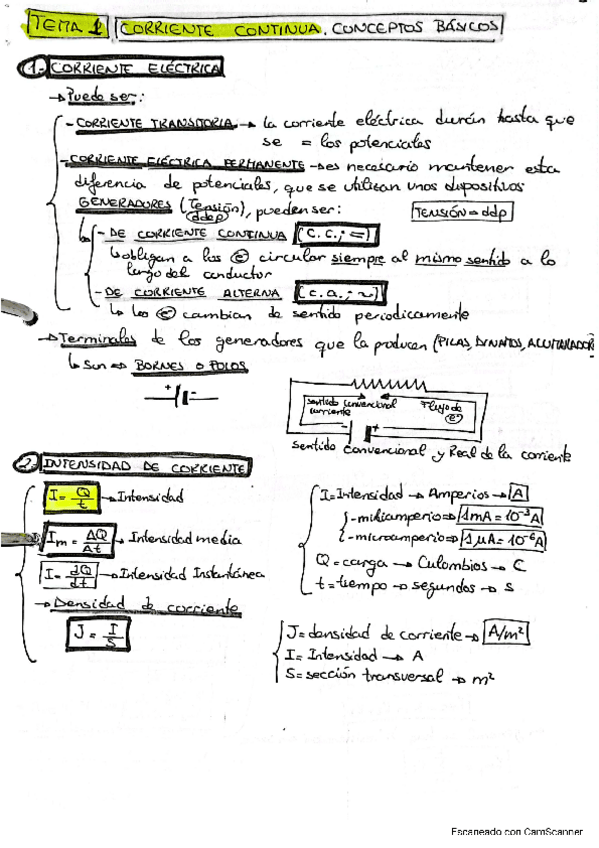 TEMA 1 CORRIENTE CONTINUA. CONCEPTOS BÁSICOS
1. CORRIENTE ELÉCTRICA
→ Puede ser:
- CORRIENTE TRANSITORIA → la corriente eléctrica durán hasta que
se = los potenciales
- CORRIENTE ELÉCTRICA PERMANENTE → es necesario mantener esta
diferencia de potenciales, que se utilisan unos dispositivos
GENERADORES (Tensión) (ddp), pueden ser:
TENSIÓN = ddp
- DE CORRIENTE CONTINUA (c.c.; =)
obligan a los e⁻ circular siempre al mismo sentido a lo
largo del conductor
- DE CORRIENTE ALTERNA (c.a.; ~)
los e⁻ cambian de sentido periodicamente
→ Terminales de los generadores que la producen (PILAS, DINAMOS,
Son ⇒ BORNES O POLOS
+ -
sentido convencional
corriente
Flujo de
e⁻
- +
sentido convencional y Real de la corriente
2. INTENSIDAD DE CORRIENTE
I = Q/t → Intensidad
Im = ΔQ/Δt → Intensidad media
I = dQ/dt → Intensidad Instantánea
→ Densidad de corriente
J = I/S
I = Intensidad → Amperios → A
- miliamperio ⇒ 1mA = 10⁻³A
- microamperio ⇒ 1μA = 10⁻⁶A
Q = carga → Culombios → C
t = tiempo → segundos → s
J = densidad de corriente → A/m²
I = Intensidad → A
S = sección transversal → m²
Escaneado con CamScanner